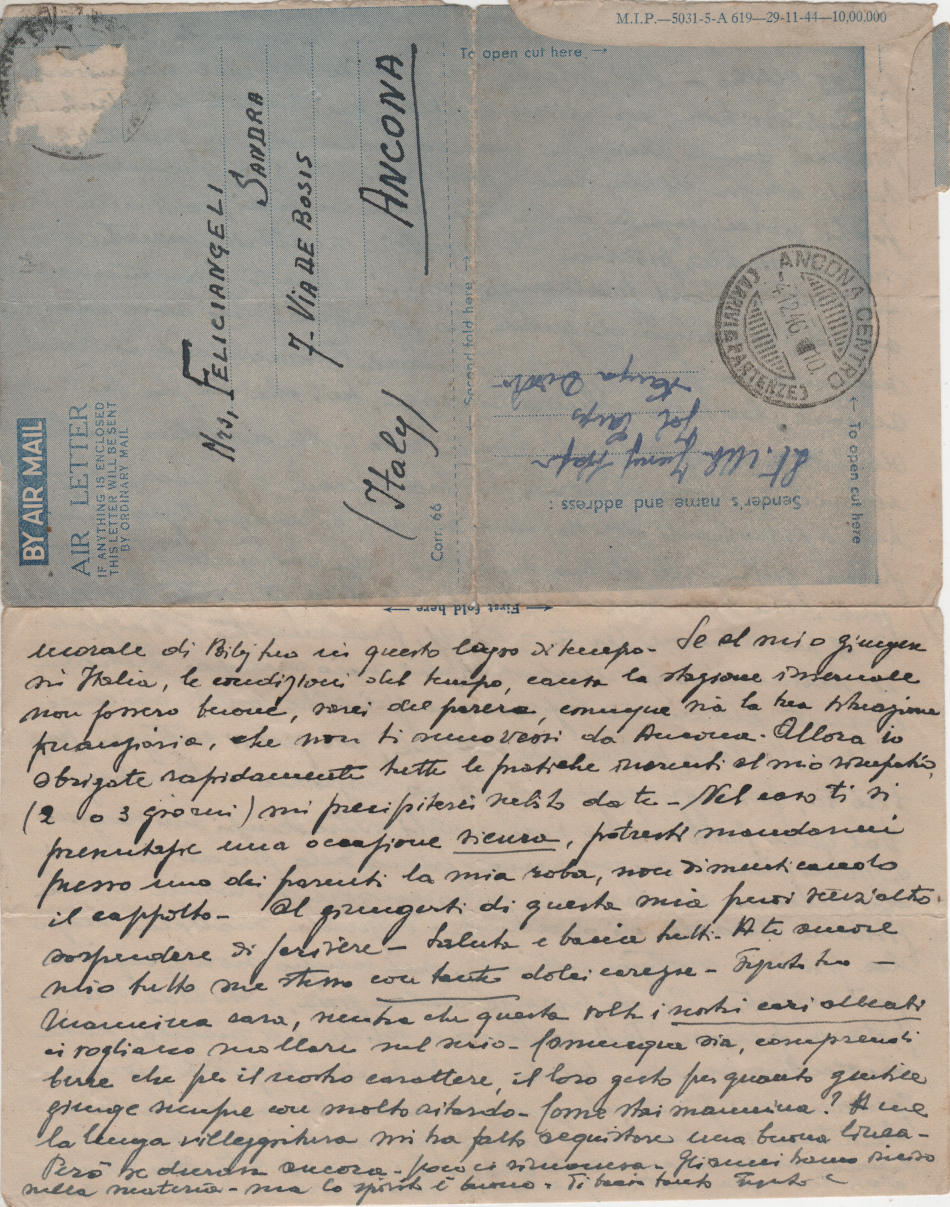 M.I.P.—5031-5-A 619—29-11-44—10,00.000
To open cut here →
BY AIR MAIL
AIR LETTER
IF ANYTHING IS ENCLOSED
THIS LETTER WILL BE SENT
BY ORDINARY MAIL
Mrs, FELICIANGELI
SANDRA
7- VIA DE BOSIS
ANCONA
(Italy)
Corr. 66
← Second fold here →
ANCONA CENTRO
(ARRIVI E PARTENZE)
Sender's name and address :
← To open cut here
← First fold here →
morale di in questo lasso di tempo - Se al mio giungere
in Italia, le condizioni del tempo, causa la stagione invernale
non fossero buone, sarei del parere, comunque sia la tua situazione
finanziaria, che non ti muovessi da Ancona. Allora io
sbrigate rapidamente tutte le pratiche inerenti al mio rimpatrio,
(2 o 3 giorni) mi precipiterei subito da te - Nel caso ti si
presentasse una occasione sicura, potresti mandarmi
presso uno dei parenti la mia roba, non dimenticando
il cappotto - Al giungerti di questa mia puoi senz'altro
sospendere di scrivere - Saluta e bacia tutti. A te amore
mio tutto me stesso con tante dolci carezze -
Mammina cara, sembra che questa volta i nostri cari alleati
ci vogliano mollare sul serio - Comunque sia, comprendi
bene che per il nostro carattere, il loro gesto per quanto gentile
giunge sempre con molto ritardo - Come stai mammina? A me
la lunga villeggiatura mi ha fatto acquistare una buona linea -
Però se durava ancora - poco ci rimaneva. Gli anni hanno inciso
sulla materia - ma lo spirito è buono. Ti bacio tanto